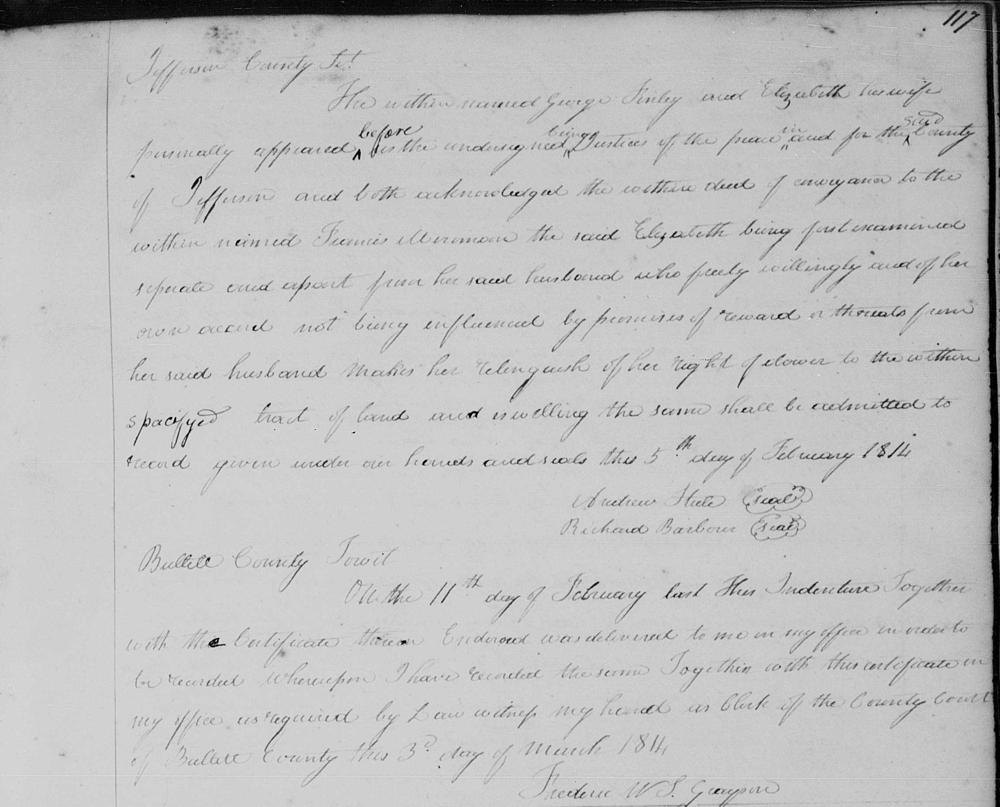 117
Jefferson County Sct
The within named George Finley and Elizabeth his wife
personally appeared before us the undersigned being Justices of the peace in and for the said County
of Jefferson and both acknowledged the within deed of conveyance to the
within named Francis Merimon the said Elizabeth being first examined
seperate and apart from her said husband who freely willingly and of her
own accord not being influenced by promises of reward or threats from
her said husband makes her relinquish of her right of dower to the within
spacifyed tract of land and is willing the same shall be admitted to
record given under our hands and seals this 5th day of February 1814
Andrew (seal)
Richard Barbour (seal)
Bullitt County Towit
On the 11th day of February last This Indenture Together
with the Certificate thereon Endorsed was delivered to me in my office in order to
be recorded Whereupon I have recorded the same Together with this certificate in
my office as required by Law witness my hand as Clerk of the County Court
of Bullitt County this 3d day of March 1814
Frederic W. S. Grayson